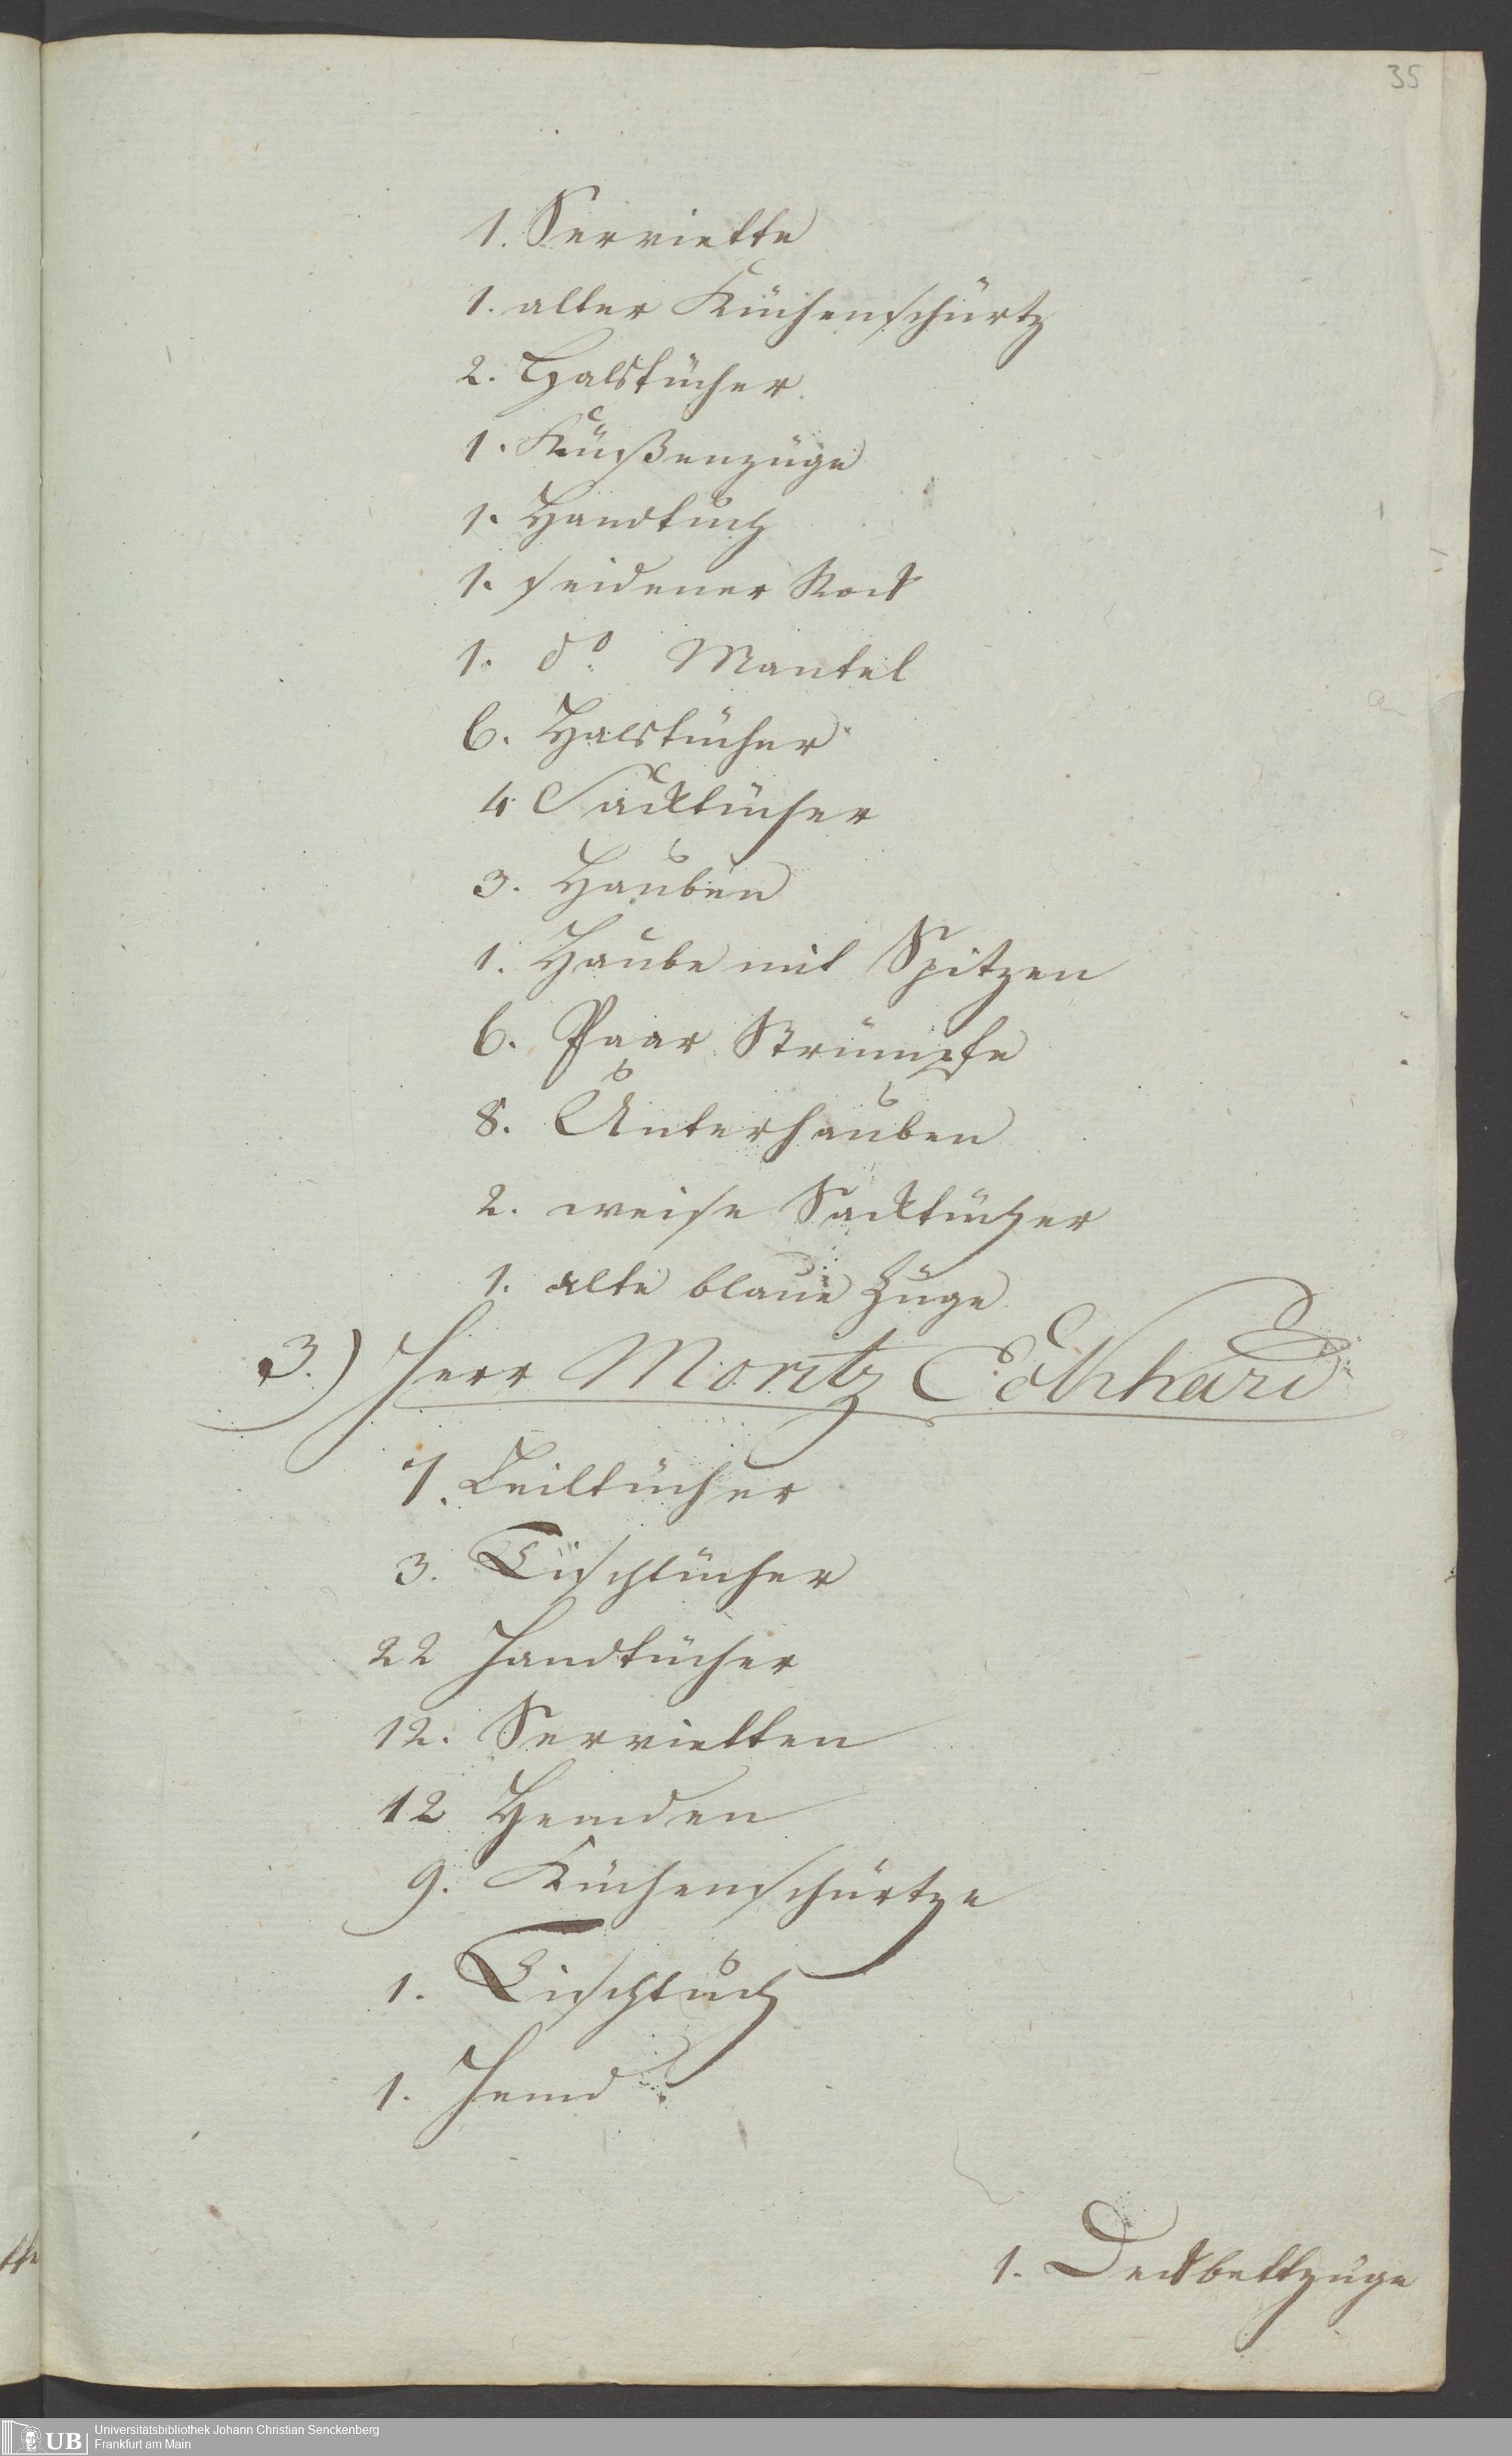 35
1. Serviette
1. alter Küchenschürtz
2. Halstücher
1. Küßenzüge
1. Handtuch
1. seidener Rock
1. do Mantel
6. Halstücher
4 Sacktücher
3. Hauben
1. Haube mit Spitzen
6. Paar Strümpfe
8. Unterhauben
2. weise Sacktücher
1. alte blaue Züge
3.) Herr Moritz Eckhard
7. Leiltücher
3. Tischtücher
22 Handtücher
12. Servietten
12 Hemden
9. Küchenschürtze
1. Tischtuch
1. Hemd.
1. Deckbettzüge
UB Universitätsbibliothek Johann Christian Senckenberg
Frankfurt am Main